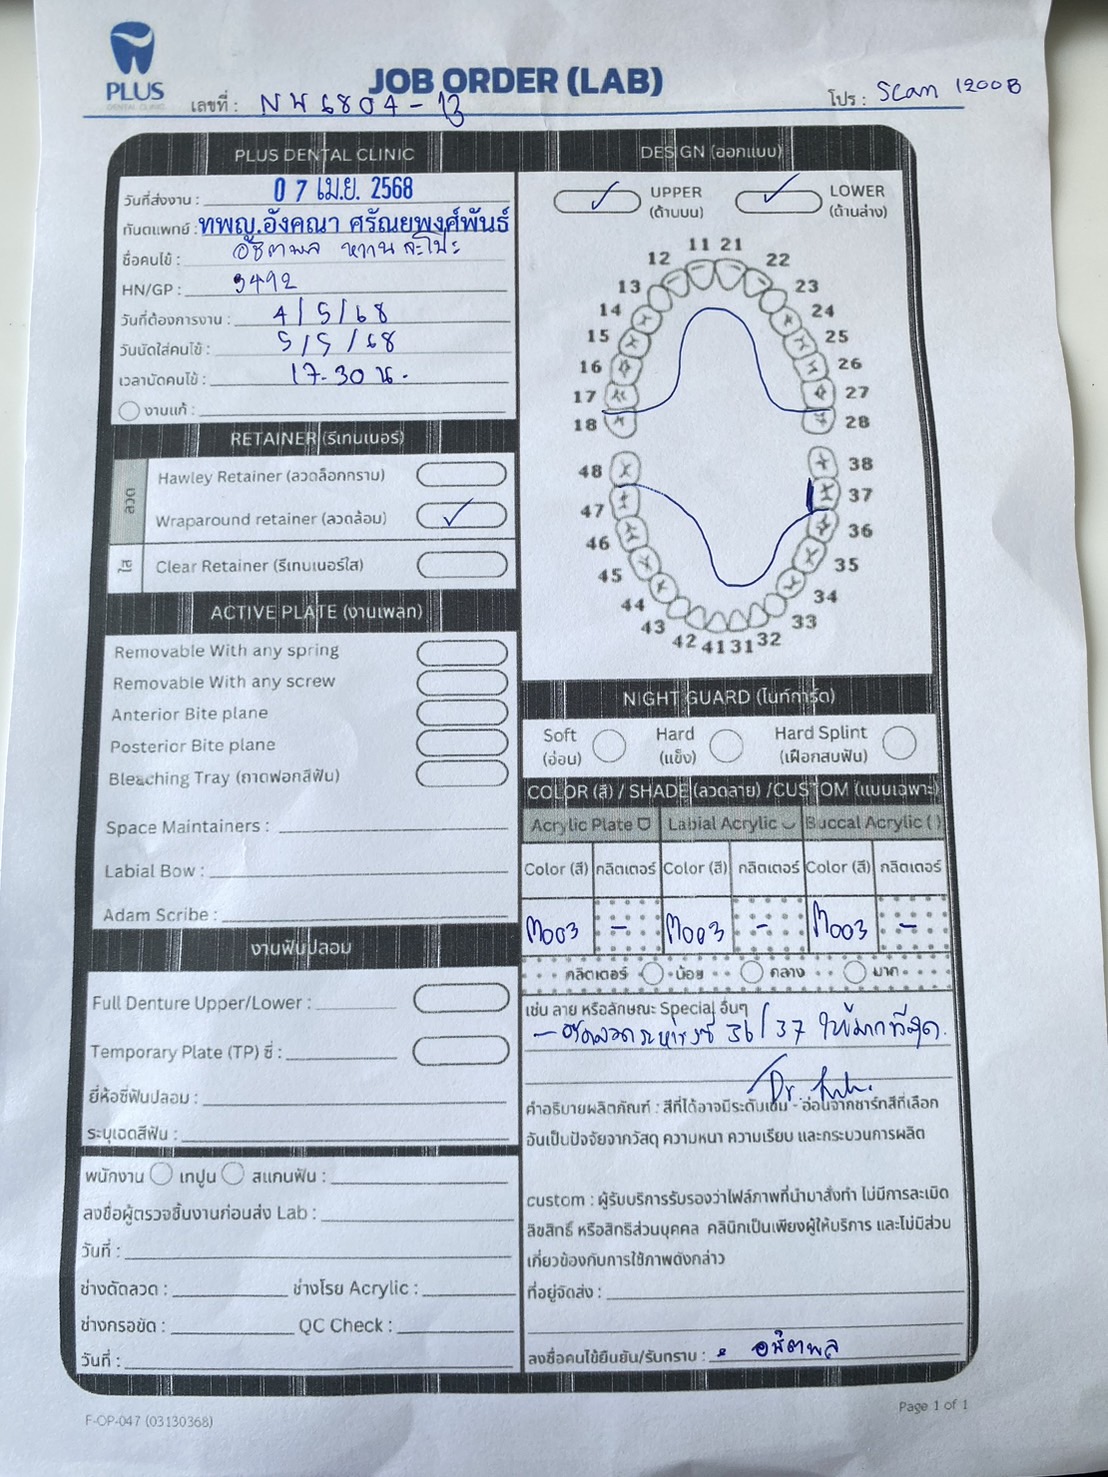 PLUS
DENTAL CLINIC
JOB ORDER (LAB)
เลขที่ : NW6804-13
โปร : Scan 1200฿
PLUS DENTAL CLINIC
วันที่ส่งงาน : 0 7 เม.ย. 2568
ทันตแพทย์ : ทพญ.อังคณา ศรัณยพงศ์พันธ์
ชื่อคนไข้ :
HN/GP : 3492
วันที่ต้องการงาน : 4/5/68
วันนัดใส่คนไข้ : 5/5/68
เวลานัดคนไข้ : 17.30 น.
งานแก้ :
RETAINER (รีเทนเนอร์)
ลวด
Hawley Retainer (ลวดล็อกกราม)
Wraparound retainer (ลวดล้อม)
ใส
Clear Retainer (รีเทนเนอร์ใส)
ACTIVE PLATE (งานเพลท)
Removable With any spring
Removable With any screw
Anterior Bite plane
Posterior Bite plane
Bleaching Tray (ถาดฟอกสีฟัน)
Space Maintainers :
Labial Bow :
Adam Scribe :
งานฟันปลอม
Full Denture Upper/Lower :
Temporary Plate (TP) ซี่ :
ยี่ห้อซี่ฟันปลอม :
ระบุเฉดสีฟัน :
พนักงาน เทปูน สแกนฟัน :
ลงชื่อผู้ตรวจชิ้นงานก่อนส่ง Lab :
วันที่ :
ช่างดัดลวด : ช่างโรย Acrylic :
ช่างกรอขัด : QC Check :
วันที่ :
DESIGN (ออกแบบ)
UPPER
(ด้านบน)
LOWER
(ด้านล่าง)
11 21
12 22
13 23
14 24
15 25
16 26
17 27
18 28
48 38
47 37
46 36
45 35
44 34
43 33
42 41 31 32
NIGHT GUARD (ไนท์การ์ด)
Soft
(อ่อน)
Hard
(แข็ง)
Hard Splint
(เฝือกสบฟัน)
COLOR (สี) / SHADE (ลวดลาย) /CUSTOM (แบบเฉพาะ)
Acrylic Plate Labial Acrylic Buccal Acrylic ( )
Color (สี) กลิตเตอร์ Color (สี) กลิตเตอร์ Color (สี) กลิตเตอร์
M003 - M003 - M003 -
กลิตเตอร์ น้อย กลาง มาก
เช่น ลาย หรือลักษณะ Special อื่นๆ
36/37 ให้มากที่สุด.
คำอธิบายผลิตภัณฑ์ : สีที่ได้อาจมีระดับเข้ม - อ่อนจากชาร์ทสีที่เลือก
อันเป็นปัจจัยจากวัสดุ ความหนา ความเรียบ และกระบวนการผลิต
custom : ผู้รับบริการรับรองว่าไฟล์ภาพที่นำมาสั่งทำ ไม่มีการละเมิด
ลิขสิทธิ์ หรือสิทธิส่วนบุคคล คลินิกเป็นเพียงผู้ให้บริการ และไม่มีส่วน
เกี่ยวข้องกับการใช้ภาพดังกล่าว
ที่อยู่จัดส่ง :
ลงชื่อคนไข้ยืนยัน/รับทราบ :
F-OP-047 (03130368)
Page 1 of 1